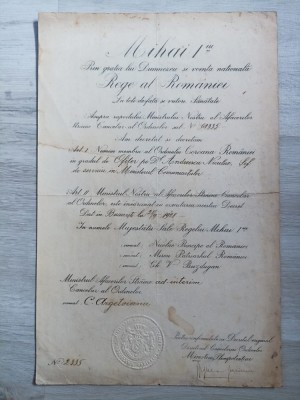 Mihai I
Prin gratia lui Dumnezeu și voința națională
Rege al României
La toți de față și viitori Sănătate
Asupra raportului Ministrului Nostru al Afacerilor
Străine Cancelar al Ordinelor sub N°
Am decretat și decretăm
Art. I Numim membru al Ordinului Coroana României
în gradul de Ofițer pe Dl Iordănescu Nicolae, Șef
de serviciu în Ministerul Comunicațiilor
Art. II Ministrul Nostru al Afacerilor Străine Cancelar
al Ordinelor, este însărcinat cu executarea acestui Decret
Dat în București la
În numele Majestății Sale Regelui Mihai I
semnat: Nicolae Principe al României
semnat: Miron Patriarhul României
semnat: Gh. V. Buzdugan
Ministrul Afacerilor Străine ad-interim
Cancelar al Ordinelor
semnat C. Argetoianu
Pentru conformitate cu Decretul original
Directorul Cancelariei Ordinelor
Ministru Plenipotențiar
N° 2335